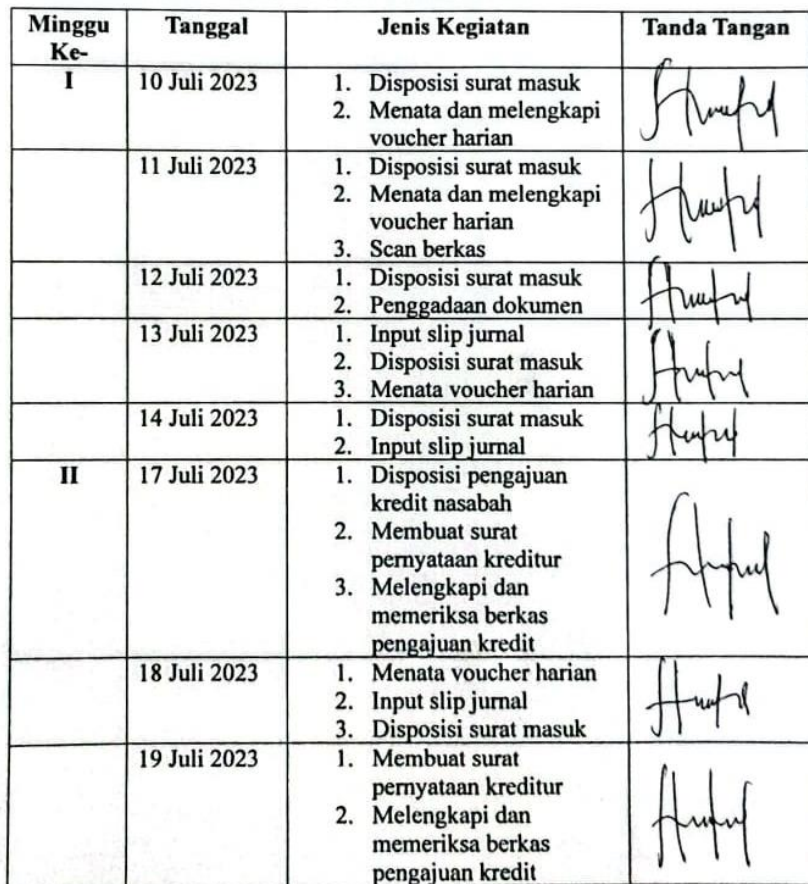 Minggu Ke- Tanggal Jenis Kegiatan Tanda Tangan
I 10 Juli 2023 1. Disposisi surat masuk
2. Menata dan melengkapi
voucher harian
11 Juli 2023 1. Disposisi surat masuk
2. Menata dan melengkapi
voucher harian
3. Scan berkas
12 Juli 2023 1. Disposisi surat masuk
2. Penggadaan dokumen
13 Juli 2023 1. Input slip jurnal
2. Disposisi surat masuk
3. Menata voucher harian
14 Juli 2023 1. Disposisi surat masuk
2. Input slip jurnal
II 17 Juli 2023 1. Disposisi pengajuan
kredit nasabah
2. Membuat surat
pernyataan kreditur
3. Melengkapi dan
memeriksa berkas
pengajuan kredit
18 Juli 2023 1. Menata voucher harian
2. Input slip jurnal
3. Disposisi surat masuk
19 Juli 2023 1. Membuat surat
pernyataan kreditur
2. Melengkapi dan
memeriksa berkas
pengajuan kredit